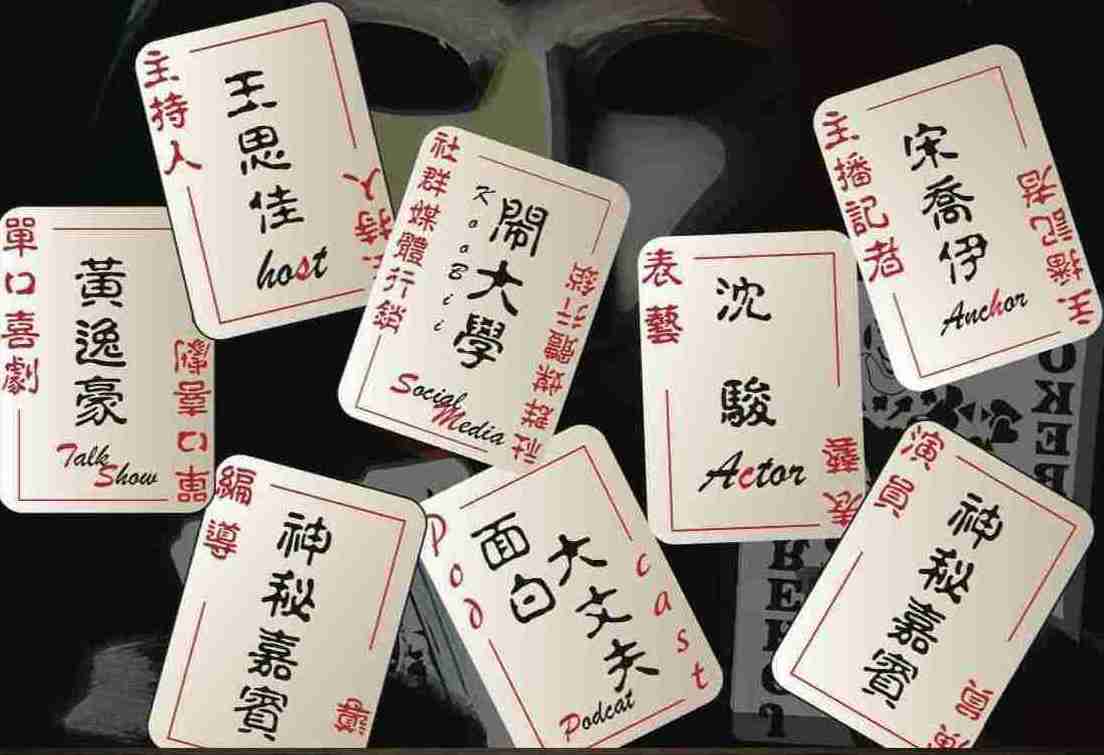 主持人
王思佳
host
主持人
單口喜劇
黃逸豪
Talk
Show
單口喜劇
社群媒體行銷
KooBii
鬧大學
Social
Media
社群媒體行銷
表藝
沈駿
Actor
表藝
主播記者
宋喬伊
Anchor
主播記者
編導
神秘嘉賓
導
Pod
面白
大丈夫
cast
Podcat
演員
神秘嘉賓
演員
OKER